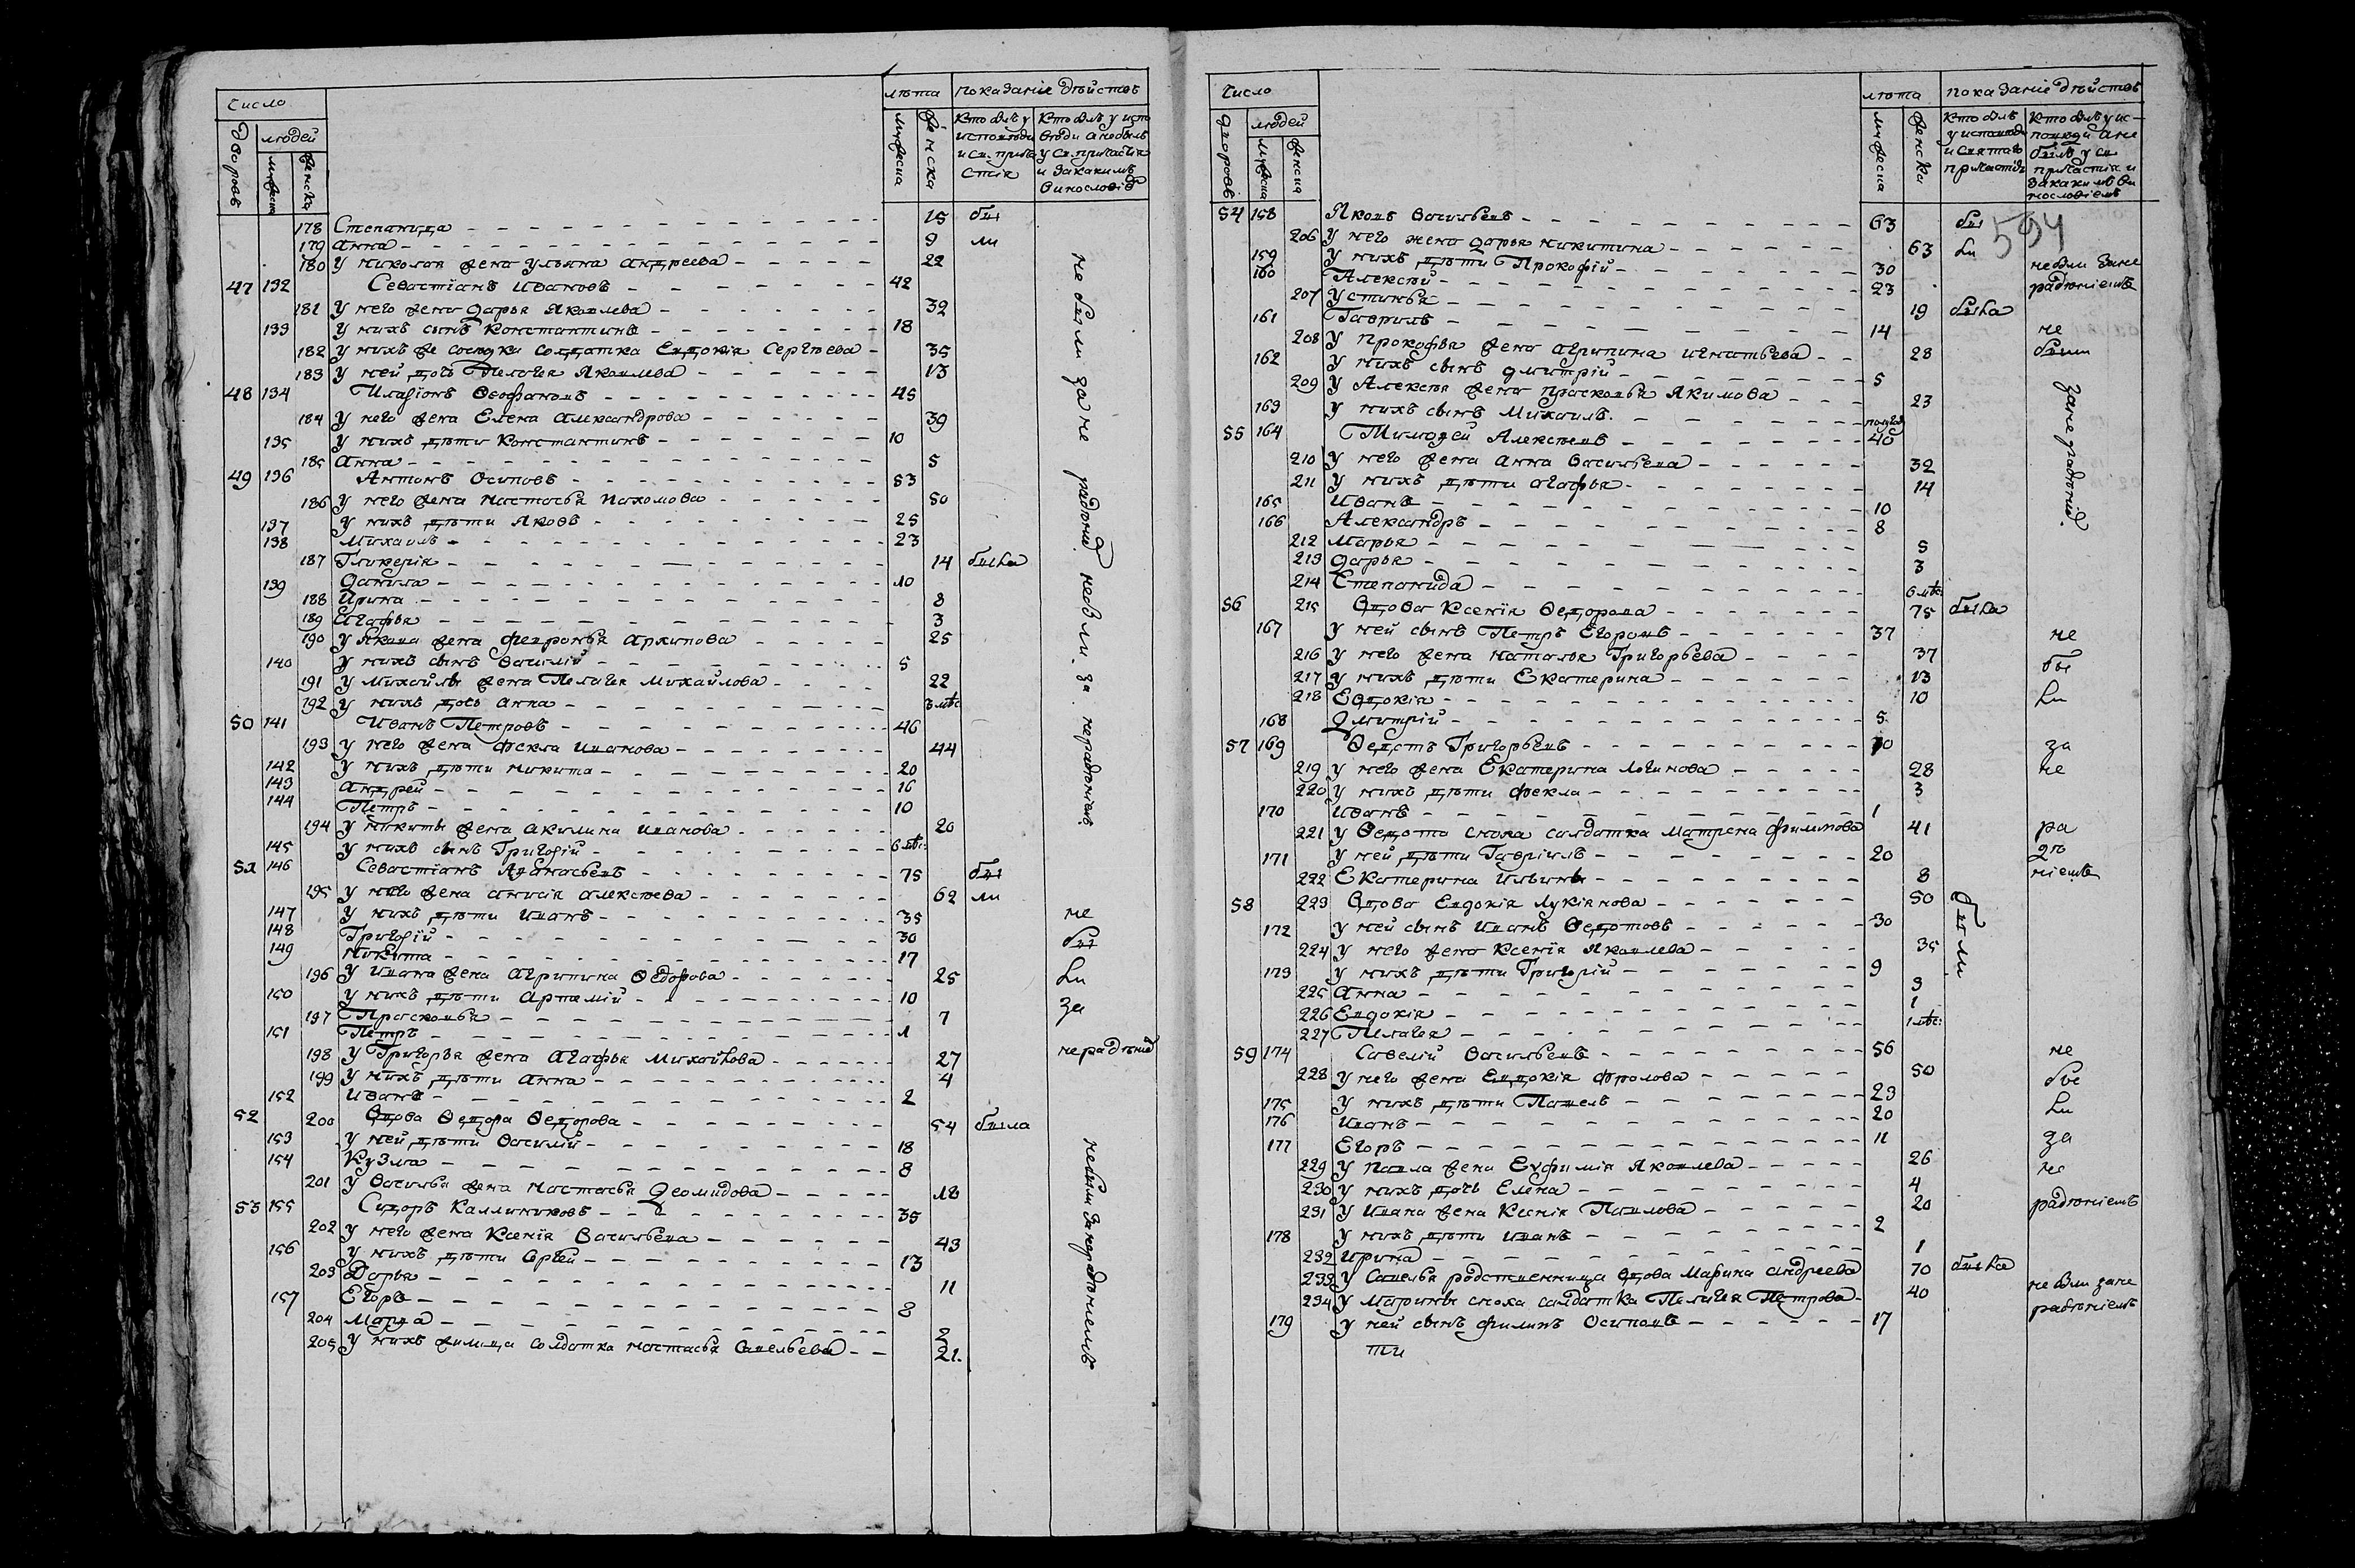 Число
лѣта показаніе дѣйствъ
дворовъ людей
мужеска женска
мужеска женска
Кто былъ у исповѣди и св. причастія
Кто былъ у исповѣди а небылъ у св. причастія и закакимъ винословіе
178 Степанида 15 бы
179 Анна 9 ли
180 У Николая жена Ульяна Андреева 22
47 132 Севастіанъ Ивановъ 42
181 У него жена Дарья Яковлева 32
133 У нихъ сынъ Константинъ 18
182 У нихъ же соседка солдатка Евдокія Сергѣева 35
183 У ней дочь Пелагея Яковлева 13
48 134 Иларіонъ Ѳеофановъ 45
184 У него жена Елена Александрова 39
135 У нихъ дѣти Константинъ 10
185 Анна 5
49 136 Антонъ Осиповъ 53
186 У него жена Настасья Пахомова 50
137 У нихъ дѣти Яковъ 25
138 Михаилъ 23
187 Гликерія 14 была
139 Данила 10
188 Ирина 8
189 Агафья 3
190 У Якова жена Февронья Архипова 25
140 У нихъ сынъ Василій 5
191 У Михайлы жена Пелагея Михайлова 22
192 У нихъ дочь Анна 3 мѣс
не были за не радѣніе. небыли. за. нерадѣніемъ
50 141 Иванъ Петровъ 46
193 У него жена Фекла Иванова 44
142 У нихъ дѣти Никита 20
143 Андрей 16
144 Петръ 10
194 У Никиты жена Акилина Иванова 20
145 У нихъ сынъ Григорій 6 мѣс:
51 146 Севастіанъ Аѳанасьевъ 75 бы
195 У него жена Анисія Алексѣева 62 ли
147 У нихъ дѣти Иванъ 35 не
148 Григорій 30 бы
149 Никита 17
196 У Ивана жена Агрипина Ѳедорова 25 ли
150 У нихъ дѣти Артемій 10 за
197 Прасковья 7
151 Петръ 1
198 У Григорья жена Агафья Михайлова 27 нерадѣніе
199 У нихъ дѣти Анна 4
152 Иванъ 2
52 200 Вдова Ѳедора Ѳедорова 54 была
153 У ней дѣти Василій 18
154 Кузма 8
201 У Василья жена Настасья Деомидова 18
53 155 Сидоръ Каллиниковъ 35
202 У него жена Ксенія Васильева 43
156 У нихъ дѣти Сргѣй 13
203 Дарья 11
157 Егоръ 8
204 Марѳа 2
205 У нихъ жилица солдатка Настасья Савельева 21.
небыли за нерадѣніемъ
Число
лѣта показаніе дѣйствъ
дворовъ людей
мужеска женска
мужеска женска
Кто былъ у исповѣди и святаго причастія
Кто былъ у исповѣди а не былъ у св причастія и закакимъ винословіемъ
594
54 158 Яковъ Васильевъ 63 бы
206 У него жена Дарья Никитина 63 ли
159 У нихъ дѣти Прокофій 30 небыли зане
160 Алексѣй 23 радѣніемъ
207 Устинья 19 была
161 Гаврилъ 14 не
208 У Прокофья жена Агрипина Игнатьева 28 были
162 У нихъ сынъ Дмитрій 5
209 У Алексѣя жена Прасковья Якимова 23
163 У нихъ сынъ Михаилъ. полгод
занерадѣніе.
55 164 Тимофей Алексѣевъ 40
210 У него жена Анна Васильева 32
211 У нихъ дѣти Агафья 14
165 Иванъ 10
166 Александръ 8
212 Марья 5
213 Дарья 3
214 Степанида 6 мѣс:
56 215 Вдова Ксенія Ѳедорова 75 была
167 У ней сынъ Петръ Егоровъ 37 не
216 У него жена Наталья Григорьева 37 бы
217 У нихъ дѣти Екатерина 13
218 Евдокія 10 ли
168 Дмитрій 5
57 169 Ѳедотъ Григорьевъ 30 за
219 У него жена Екатерина Логинова 28 не
220 У нихъ дѣти Фекла 3
170 Иванъ 1
221 У Ѳедота сноха солдатка Матрена Филипова 41 ра
171 У ней дѣти Гавріилъ 20 дѣ
222 Екатерина Ильины 8 ніемъ
58 223 Вдова Евдокія Лукіянова 50
172 У ней сынъ Иванъ Ѳедотовъ 30
224 У него жена Ксенія Яковлева 35
173 У нихъ дѣти Григорій 9
225 Анна 3
226 Евдокія 1
227 Пелагея 1 мѣс:
были
59 174 Савелій Васильевъ 56 не
228 У него жена Евдокія Фролова 50 бы
175 У нихъ дѣти Павелъ 23
176 Иванъ 20 ли
177 Егоръ 11 за
229 У Павла жена Еуфимія Яковлева 26 не
230 У нихъ дочь Елена 4
231 У Ивана жена Ксенія Павлова 20 радѣніемъ
178 У нихъ дѣти Иванъ 2
232 Ирина 1
233 У Савелья родственница вдова Марина Андреева 70 была
234 У Марины сноха солдатка Пелагея Петрова 40 небыли зане
179 У ней сынъ Филипъ Осиповъ 17 радѣніемъ
ти